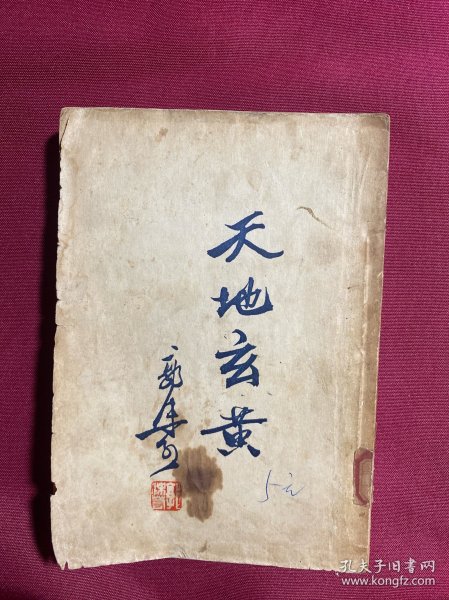 天地玄黄
郭沫若
5元
孔夫子旧书网
www.kongfz.com